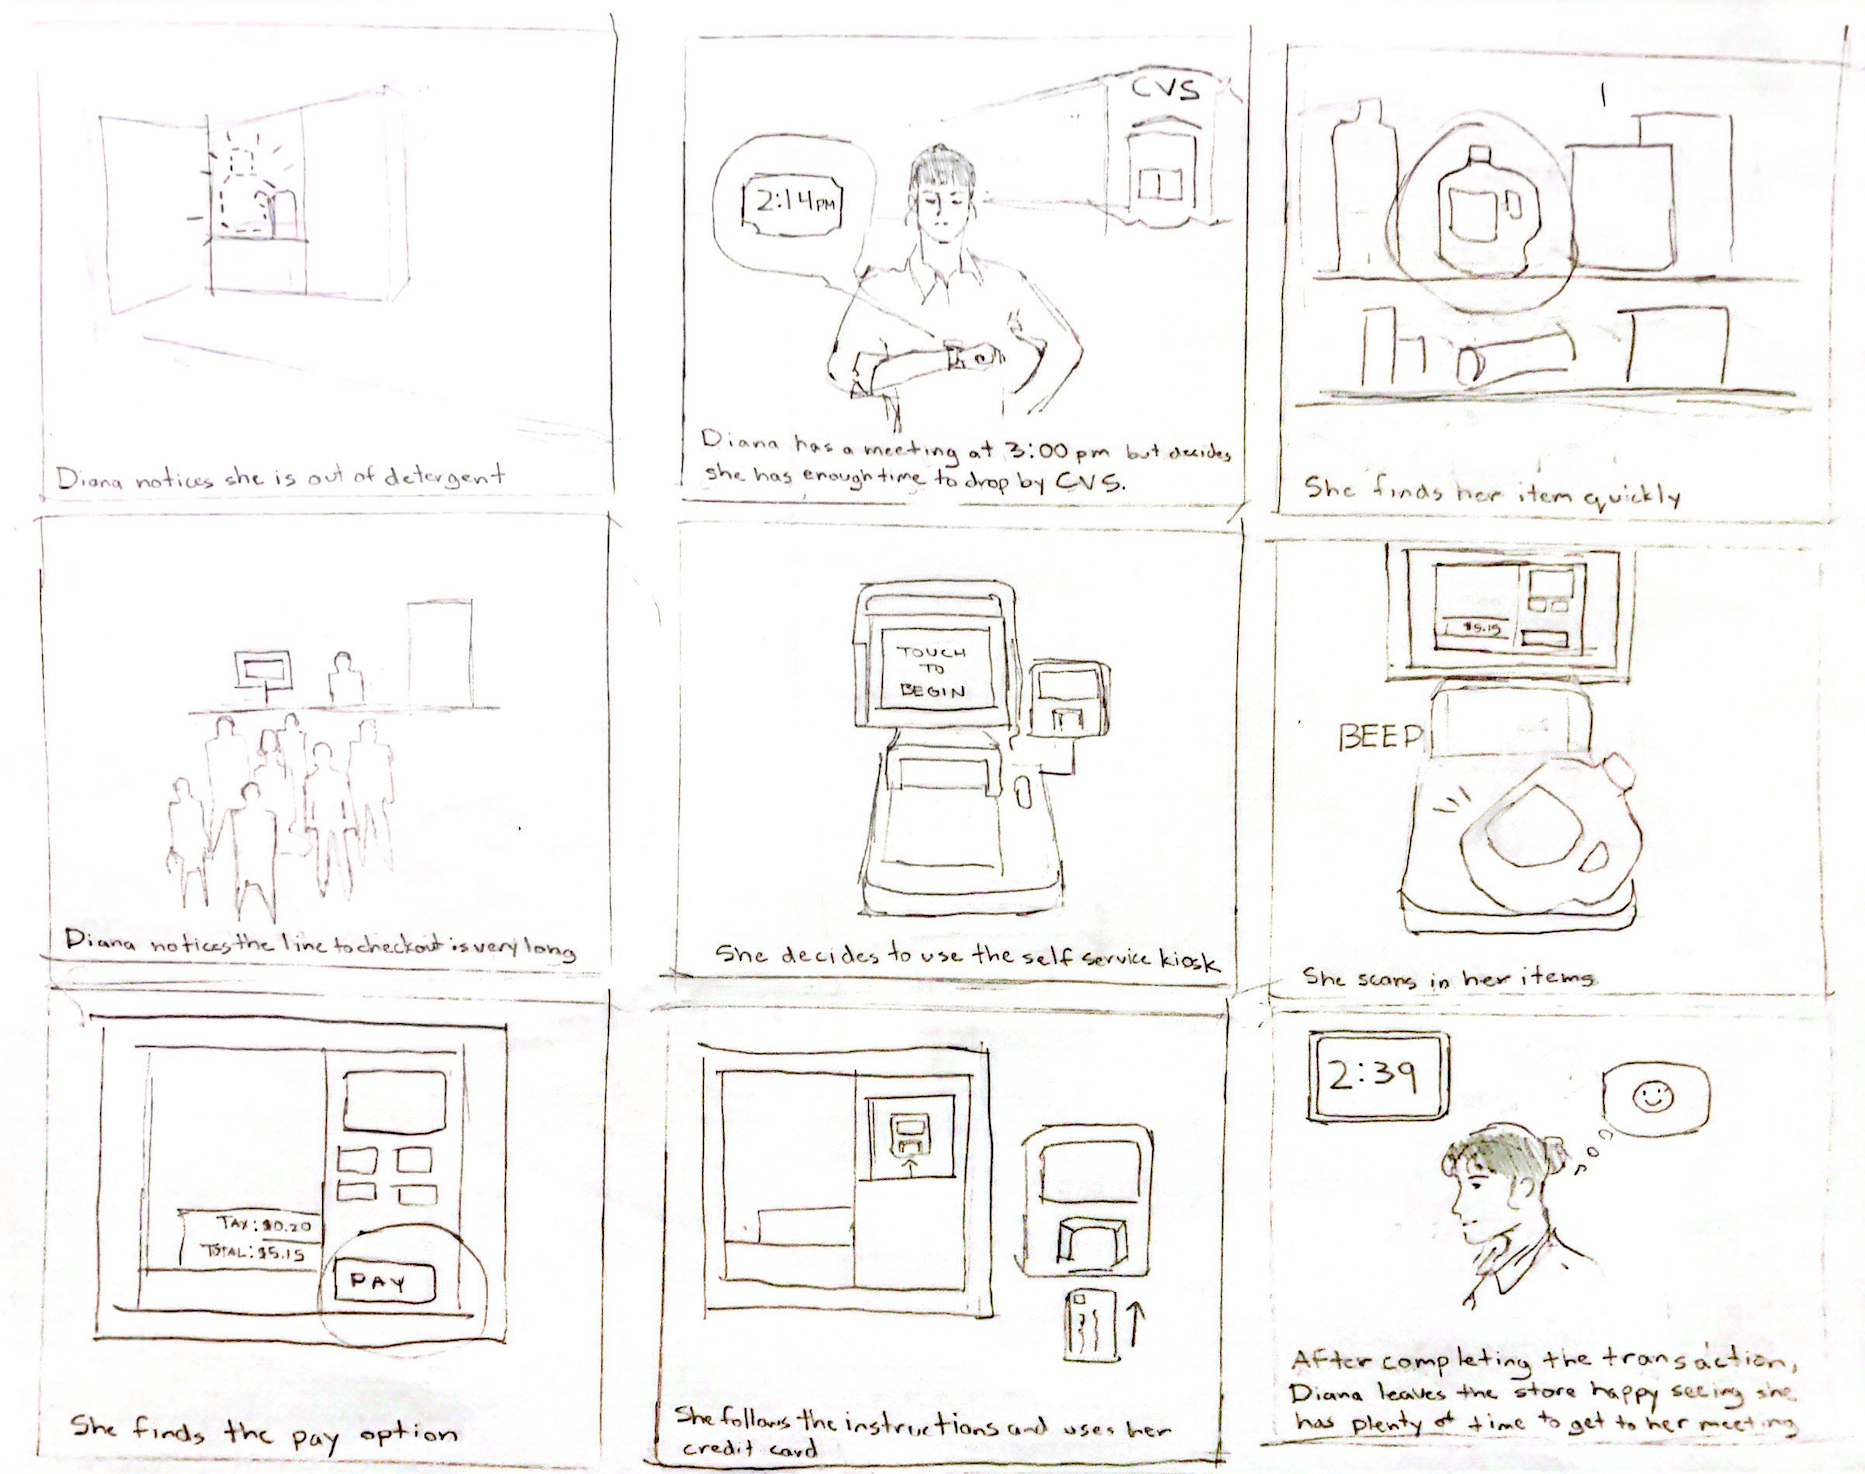 Diana notices she is out of detergent
CVS
2:14 PM
Diana has a meeting at 3:00 pm but decides
she has enough time to drop by CVS.
She finds her item quickly
Diana notices the line to checkout is very long
TOUCH
TO
BEGIN
She decides to use the self service kiosk
$5.15
BEEP
She scans in her items
TAX: $0.20
TOTAL: $5.15
PAY
She finds the pay option
She follows the instructions and uses her
credit card
2:39
After completing the transaction,
Diana leaves the store happy seeing she
has plenty of time to get to her meeting